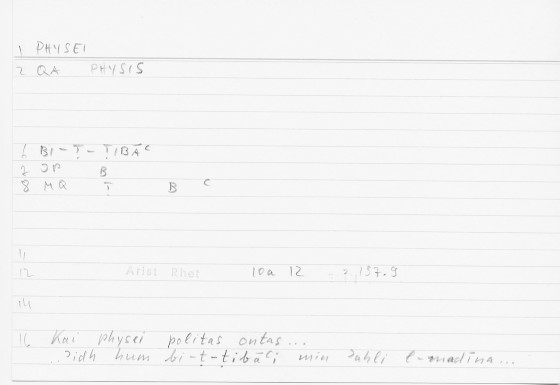 1 PHYSEI
2 QA PHYSIS
1 BI-Ṭ-ṬIBĀC
2 JP B
8 MQ Ṭ B C
11
12 Arist Rhet 10a 12 2, 197.9
14
16 Kai physei politas ontas...
ʾidh hum bi-ṭ-ṭibāʿi min ʾahli l-madīna...